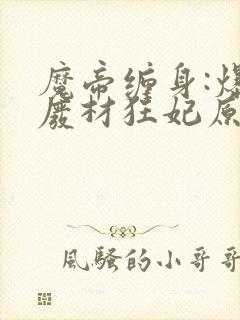 魔帝缠身:爆
廢材狂妃原
風騷的小哥哥